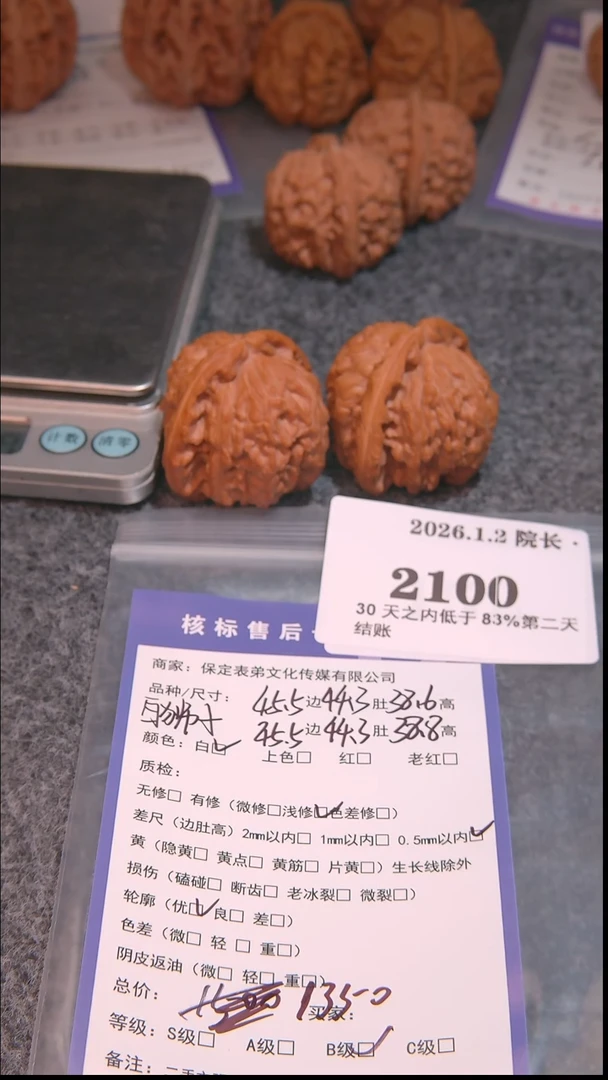 计数 清零
2026.1.2 院长·
2100
30 天之内低于 83%第二天
结账
核标售后
商家：保定表弟文化传媒有限公司
品种/尺寸： 45.5边44.3肚38.6高
45.5边44.3肚38.8高
颜色：白☑ 上色□ 红□ 老红□
质检：
无修□ 有修（微修□浅修☑色差修□）
差尺（边肚高）2mm以内□ 1mm以内□ 0.5mm以内☑
黄（隐黄□ 黄点□ 黄筋□ 片黄□）生长线除外
损伤（磕碰□ 断齿□ 老冰裂□ 微裂□）
轮廓（优☑良□ 差□）
色差（微□ 轻□ 重□）
阴皮返油（微□ 轻□ 重□）
总价： 1350 买家：
等级：S级□ A级□ B级☑ C级□
备注：